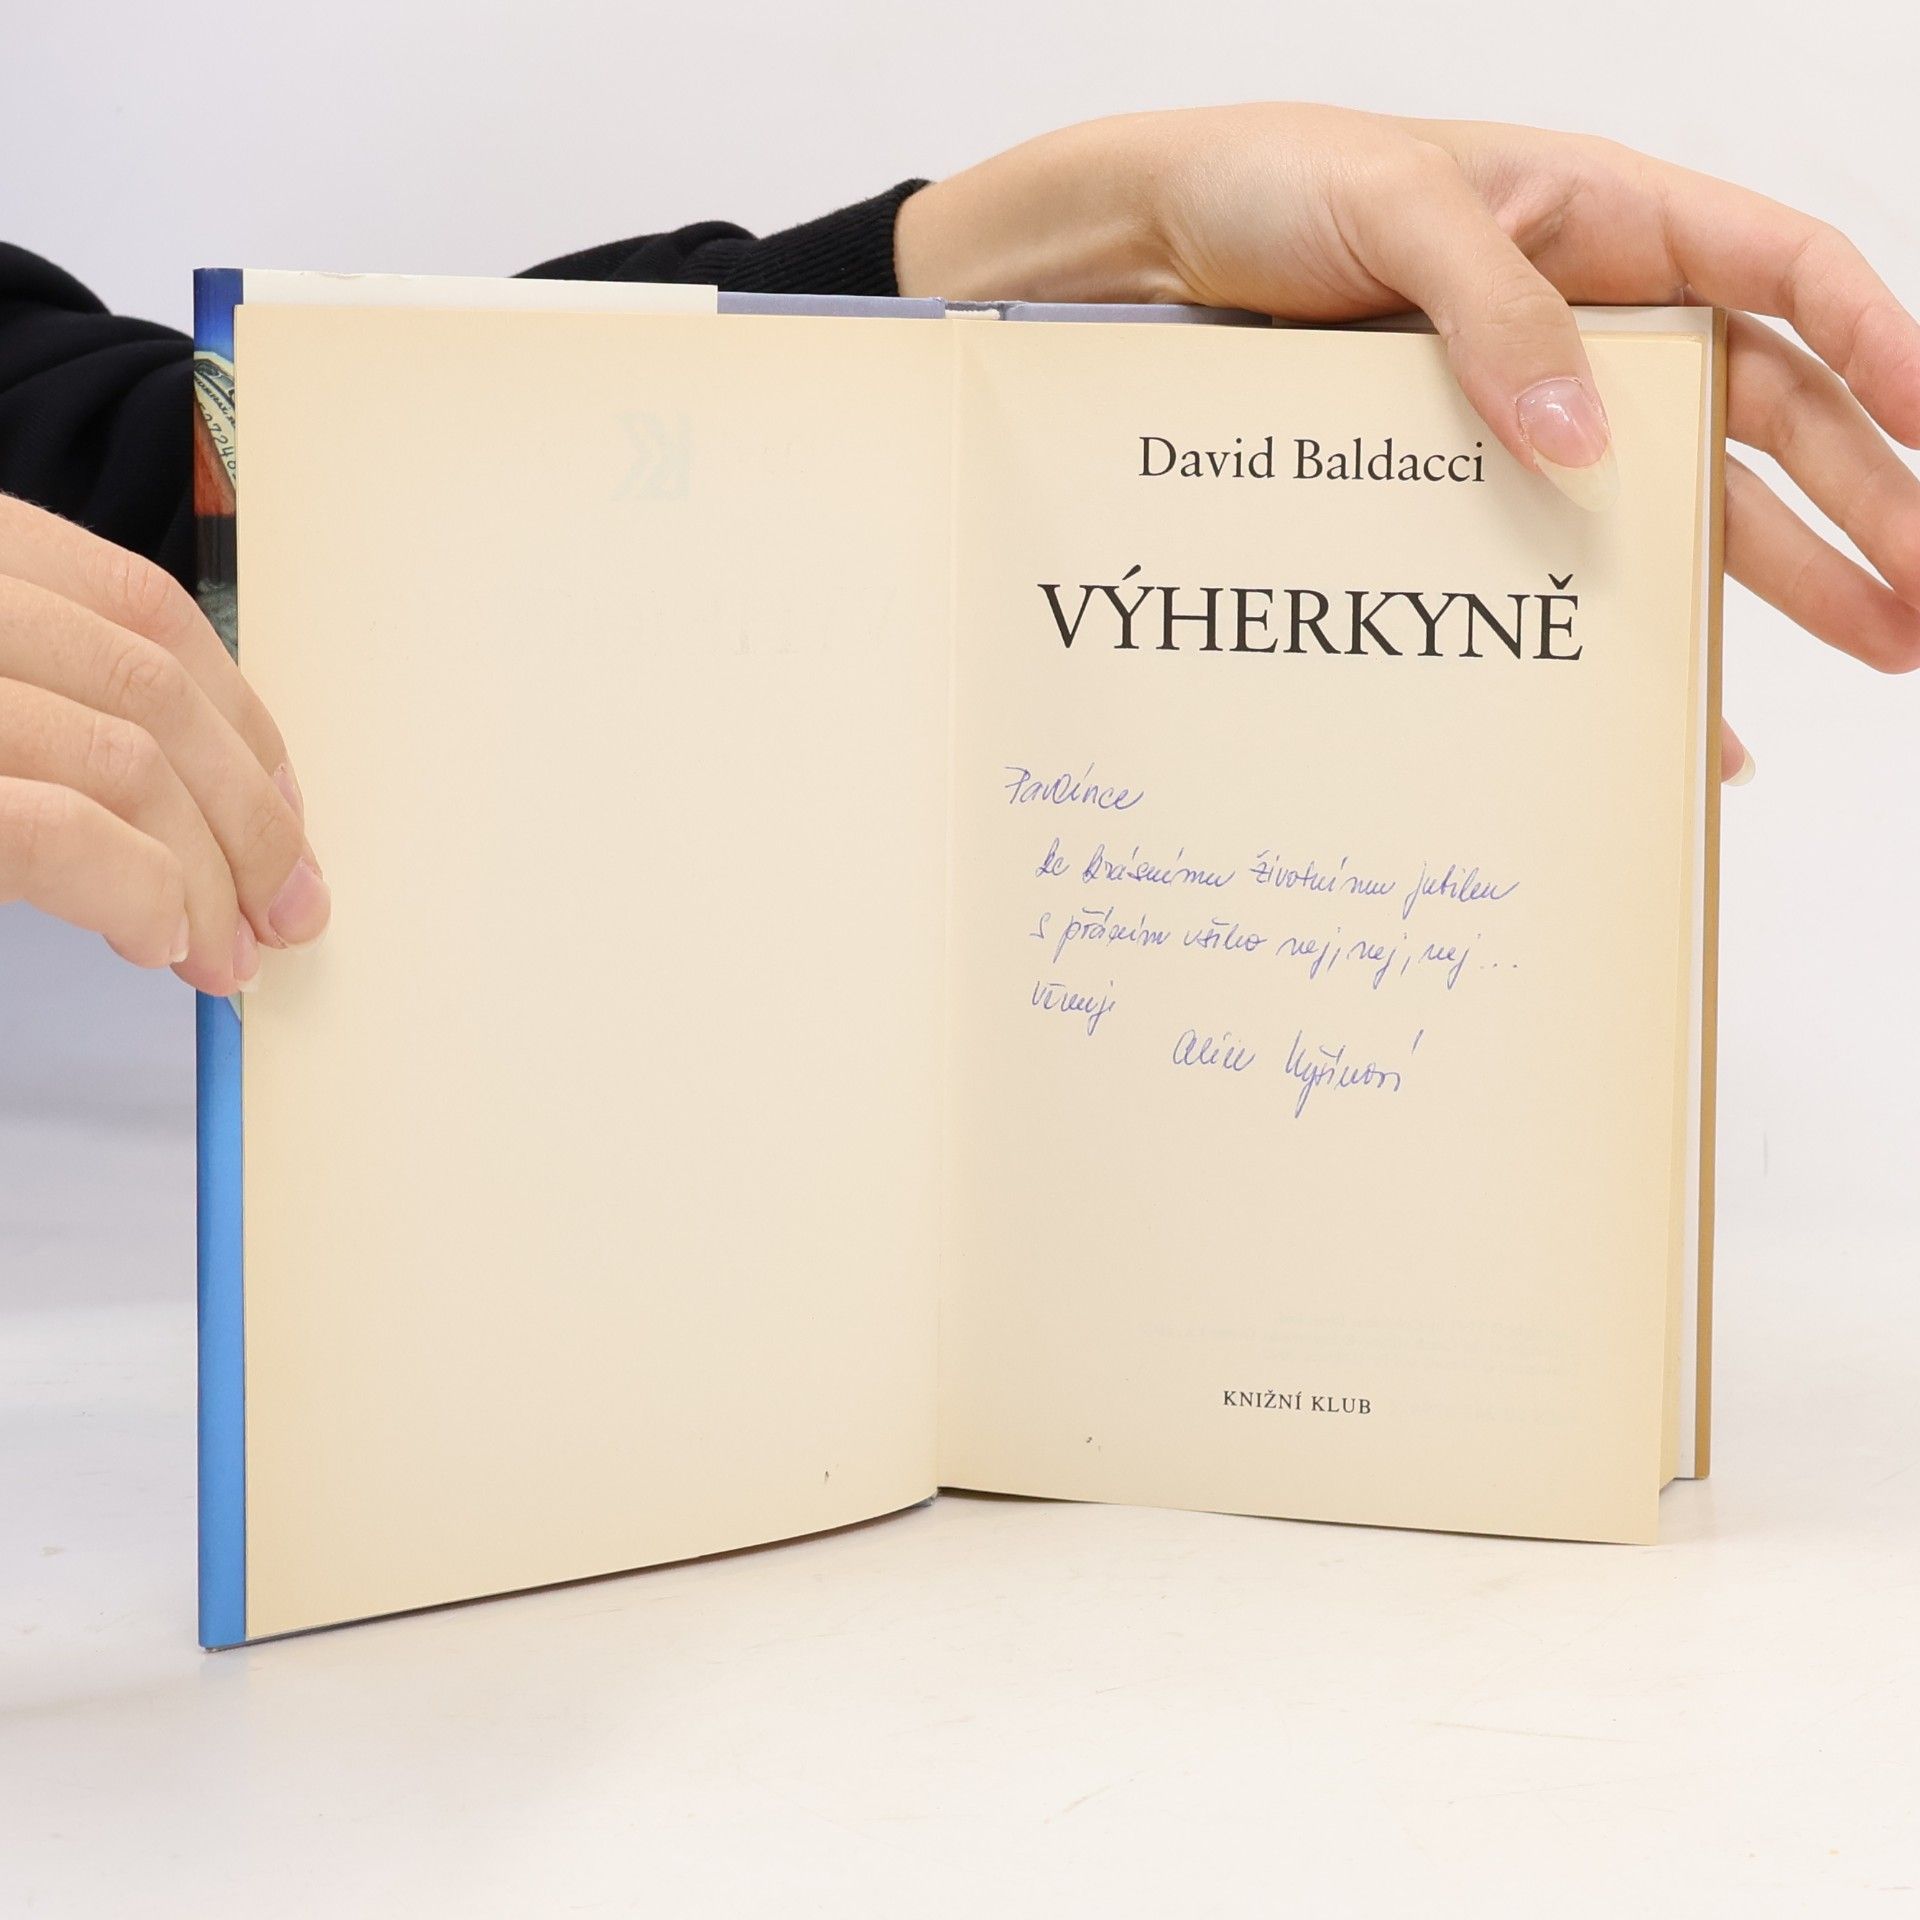 David Baldacci
VÝHERKYNĚ
Pavlínce
ke krásnému životnímu jubileu
s přáním všeho nej, nej, nej...
věnuje
Alice
KNIŽNÍ KLUB